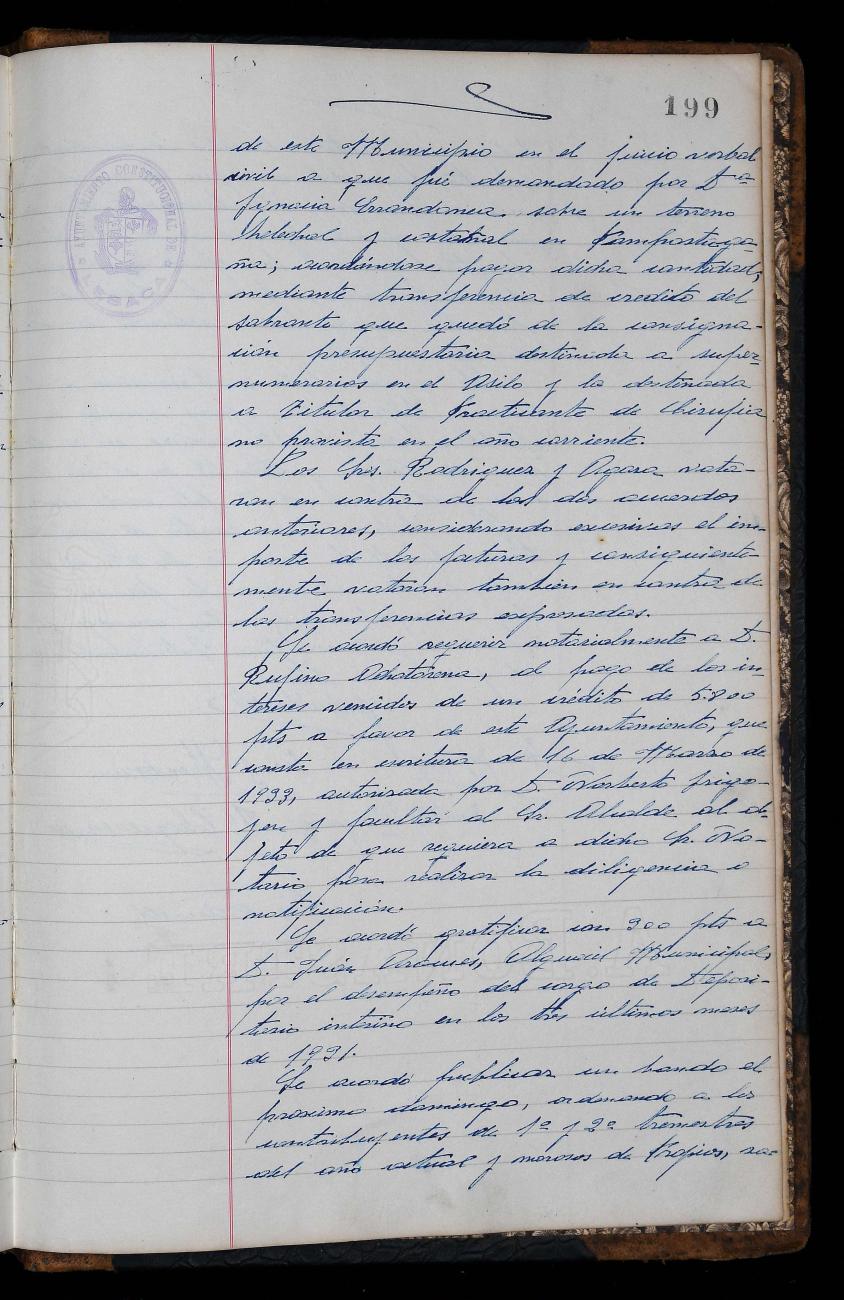 199
AYUNTAMIENTO CONSTITUCIONAL DE
LESACA
de este Municipio en el juicio verbal
civil a que fué demandado por Dª
Ignacia Errandonea, sobre un terreno
helechal y castañal en
ña; acordándose pagar dicha cantidad,
mediante transferencia de credito del
sobrante que quedó de la consigna-
ción presupuestaria destinada a super-
numerarios en el Asilo y la destinada
a Titular de Practicante de Cirujia
no provista en el año corriente.
Los Srs. Rodriguez y Agara vota-
ron en contra de los dos acuerdos
anteriores, considerando excesivas el im-
porte de las facturas y consiguiente-
mente votaron tambien en contra de
las transferencias expresadas.
Se acordó requerir notarialmente a D.
Rufino Ochotorena, el pago de los in-
tereses vencidos de un crédito de 5.800
pts a favor de este Ayuntamiento, que
consta en escritura de 16 de Marzo de
1923, autorizada por D. Norberto Frigo-
yen y facultar al Sr. Alcalde al ob-
jeto de que requiera a dicho Sr. No-
tario para realizar la diligencia o
notificación.
Se acordó gratificar con 300 pts a
D. Juán Alguacil Municipal,
por el desempeño del cargo de Deposi-
tario interino en los tres últimos meses
de 1931.
Se acordó publicar un bando el
proximo domingo, ordenando a los
contribuyentes de 1º y 2º tremestres
del año actual y morosos de Propios, sa-